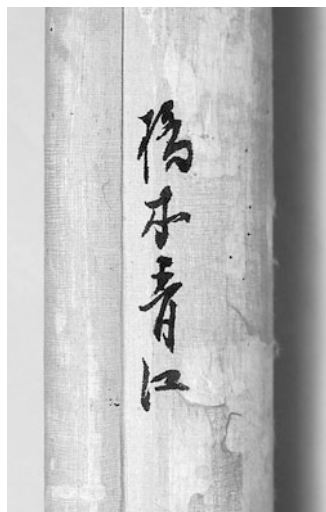 橋本青江